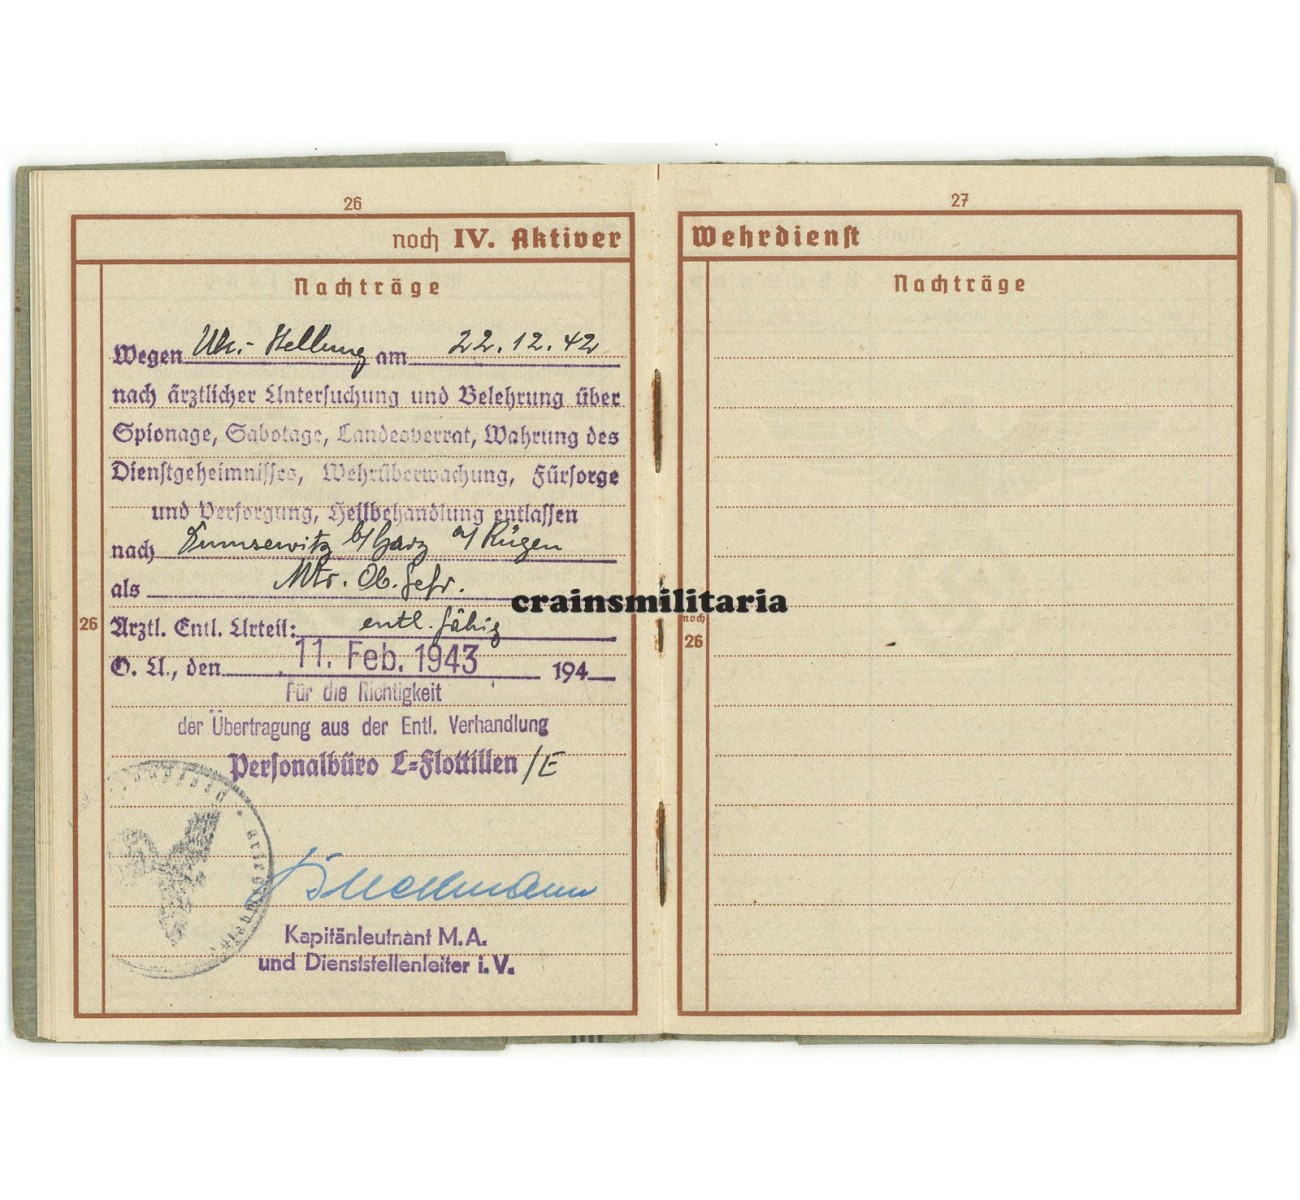 26
noch IV. Aktiver
Nachträge
Wegen Uk.-Stellung am 22.12.42
nach ärztlicher Untersuchung und Belehrung über
Spionage, Sabotage, Landesverrat, Wahrung des
Dienstgeheimnisses, Wehrüberwachung, Fürsorge
und Versorgung, Heilbehandlung entlassen
nach Dumsewitz b/Garz a/Rügen
als Mtr. Ob. Gefr.
26 Arztl. Entl. Urteil: entl. fähig
O. U., den 11. Feb. 1943 194
Für die Richtigkeit
der Übertragung aus der Entl. Verhandlung
Personalbüro L=Flottillen /E
Kapitänleutnant M.A.
und Dienststellenleiter i. V.
27
Wehrdienst
Nachträge
noch
26
crainsmilitaria